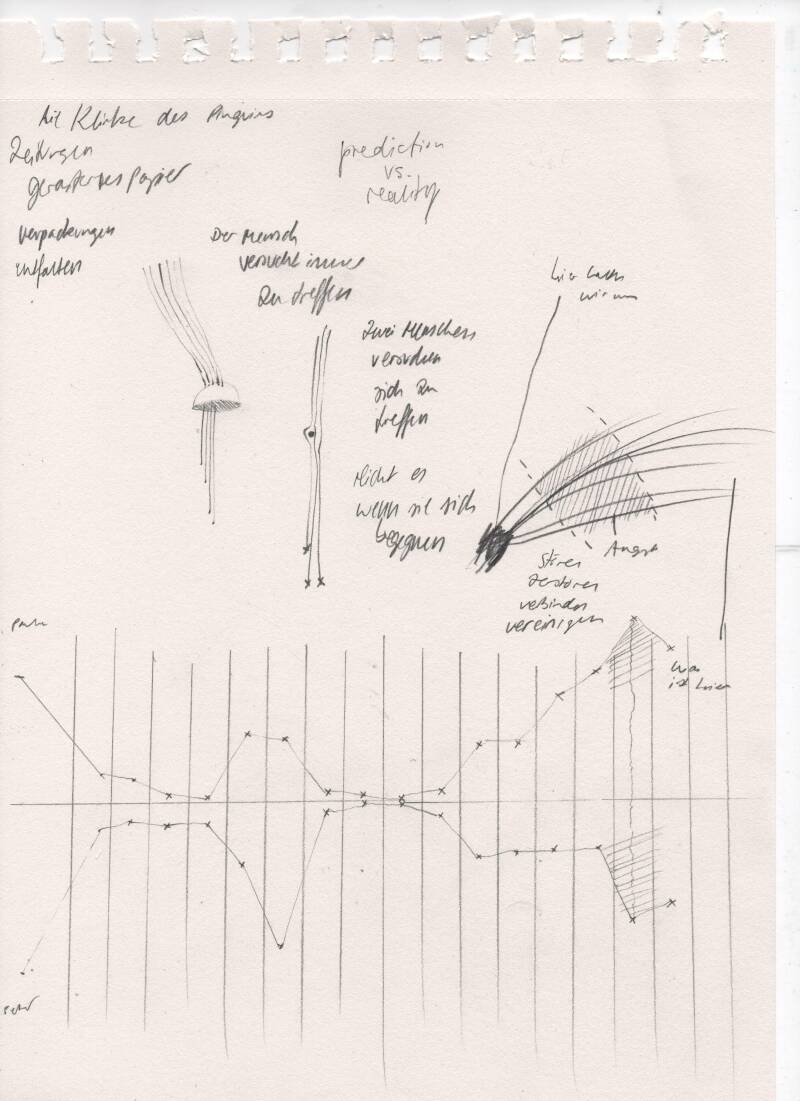 des Pinguins
Zeitungen
gerastertes Papier
prediction
vs.
reality
Verpackungen
entfalten
Der Mensch
versucht immer
zu treffen
Zwei Menschen
versuchen
sich zu
treffen
Nicht es
wenn sie sich
begegnen
Angst
Stören
zerstören
verbinden
vereinigen
was
ist hier